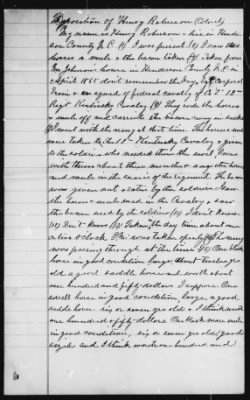 Deposition of Henry Roberson (Col'd)
My name is Henry Roberson I live in Hender
son County N.C. (1) I was present (2) I saw the
horses & mule & the bacon taken (3) Taken from
Mr Johnsons house in Henderson County N.C. in
April 1865 don't remember the day, by
Irvin & a squad of federal cavalry of Co "I" 12th
Regt Kentucky Cavalry (4) They rode the horses
& mule off and carried the bacon away in sacks
I went with the army at that time. The horses and
mule taken to the 12th Kentucky Cavalry & given
to the soldiers who needed them the most. I was
with them about three months & saw the horses
and mule in the service of the regiment. The bacon
was given out & eaten by the soldiers. I saw
the horses & mule used in the Cavalry & saw
the bacon used by the soldiers (10) I don't know
(11) Don't know (12) Taken in the day time about one
or two o'clock P.M. was taken openly The army
was passing through at the time (15) One black
horse in good condition large about twelve years
old a good saddle horse and worth about
one hundred and fifty dollars I suppose. One
sorrell horse in good condition, large, a good
saddle horse six or seven years old & I think worth
one hundred & fifty dollars One black mare mule
in good condition, six or seven years old good
size and I think worth one hundred and